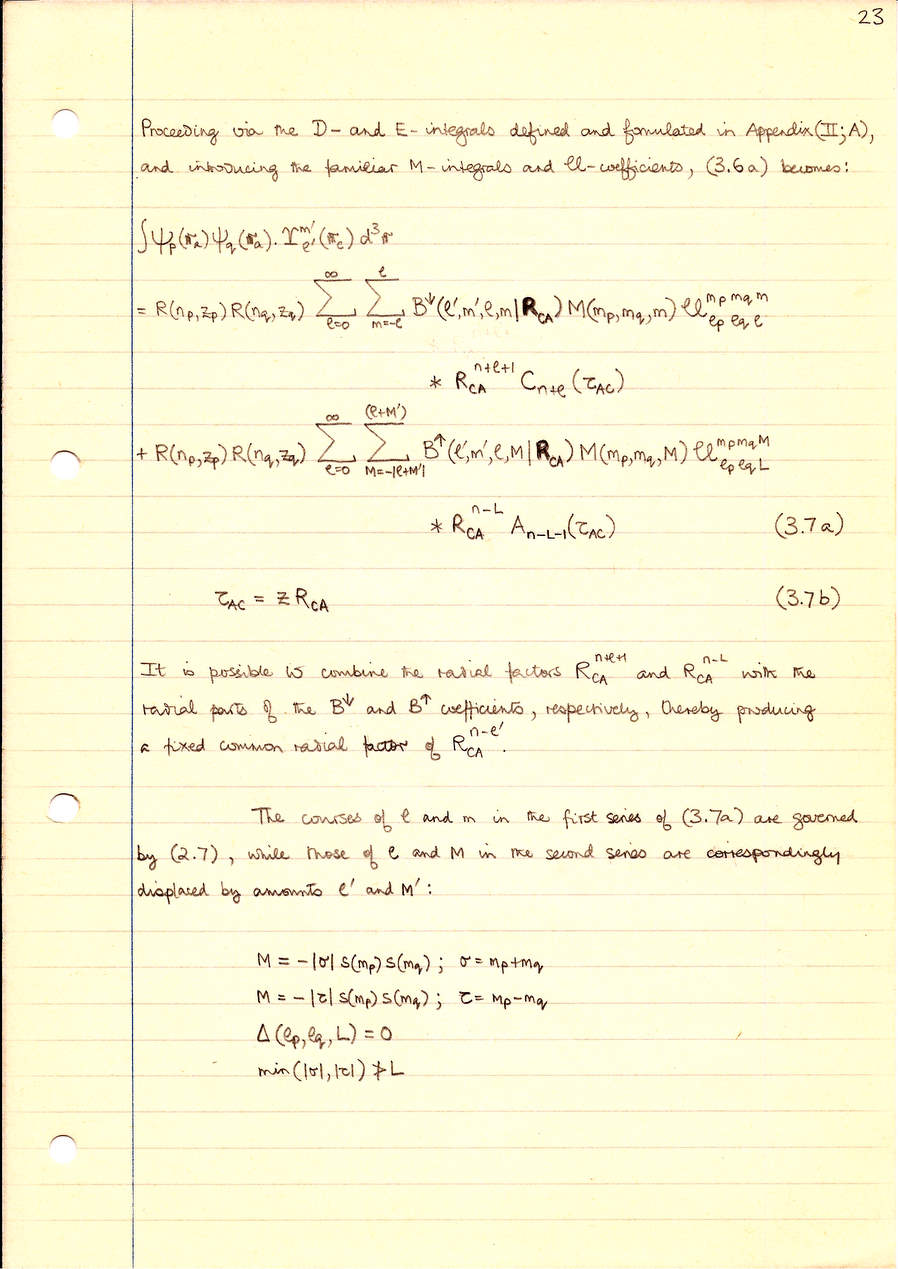 23
Proceeding via the D- and E-integrals defined and formulated in Appendix (II;A),
and introducing the familiar M-integrals and 𝒰-coefficients, (3.6a) becomes:
∫ψ_p(r_a)ψ_q(r_a).Υ_ℓ'^m'(r_c) d³r
= R(n_p,z_p) R(n_q,z_q) Σ_{ℓ=0}^{∞} Σ_{m=-ℓ}^{ℓ} B^↓(ℓ',m',ℓ,m|R_CA) M(m_p,m_q,m) 𝒰_{ℓ_p ℓ_q ℓ}^{m_p m_q m}
* R_CA^{n+ℓ+1} C_{n+ℓ}(τ_AC)
+ R(n_p,z_p) R(n_q,z_q) Σ_{ℓ=0}^{∞} Σ_{M=-|ℓ+M'|}^{(ℓ+M')} B^↑(ℓ',m',ℓ,M|R_CA) M(m_p,m_q,M) 𝒰_{ℓ_p ℓ_q L}^{m_p m_q M}
* R_CA^{n-L} A_{n-L-1}(τ_AC) (3.7a)
τ_AC = z R_CA (3.7b)
It is possible to combine the radial factors R_CA^{n+ℓ+1} and R_CA^{n-L} with the
radial parts of the B^↓ and B^↑ coefficients, respectively, thereby producing
a fixed common radial factor of R_CA^{n-ℓ'}.
The courses of ℓ and m in the first series of (3.7a) are governed
by (2.7), while those of ℓ and M in the second series are correspondingly
displaced by amounts ℓ' and M':
M = -|σ| s(m_p) s(m_q); σ = m_p+m_q
M = -|τ| s(m_p) s(m_q); τ = m_p-m_q
Δ(ℓ_p,ℓ_q,L) = 0
min(|σ|,|τ|) ≯ L